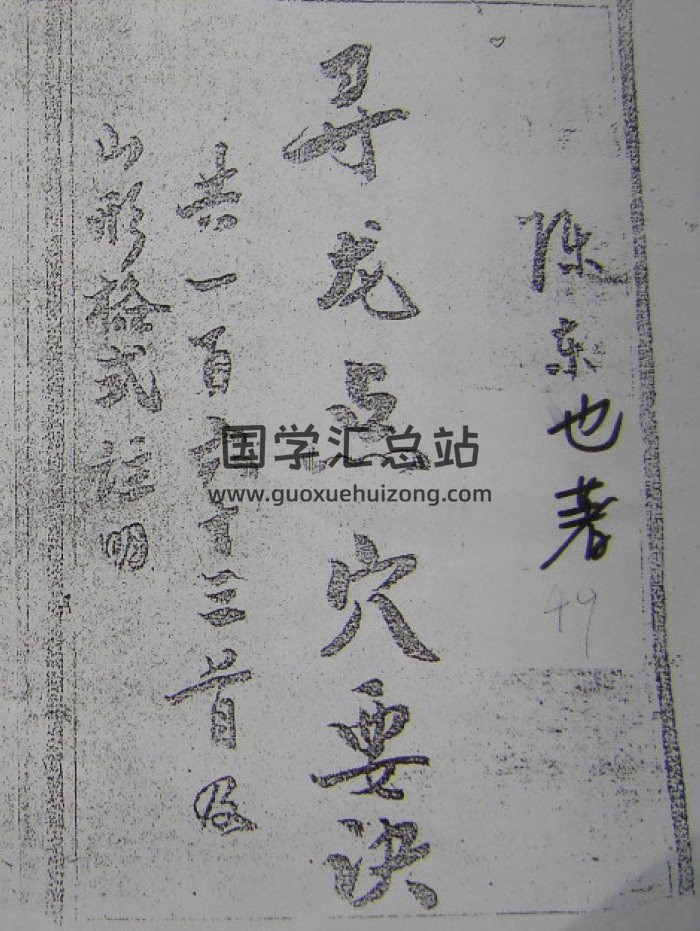 陈东也著
49
寻龙点穴要诀
共一百十三首及
山形格式註明
国学汇总站
www.guoxuehuizong.com